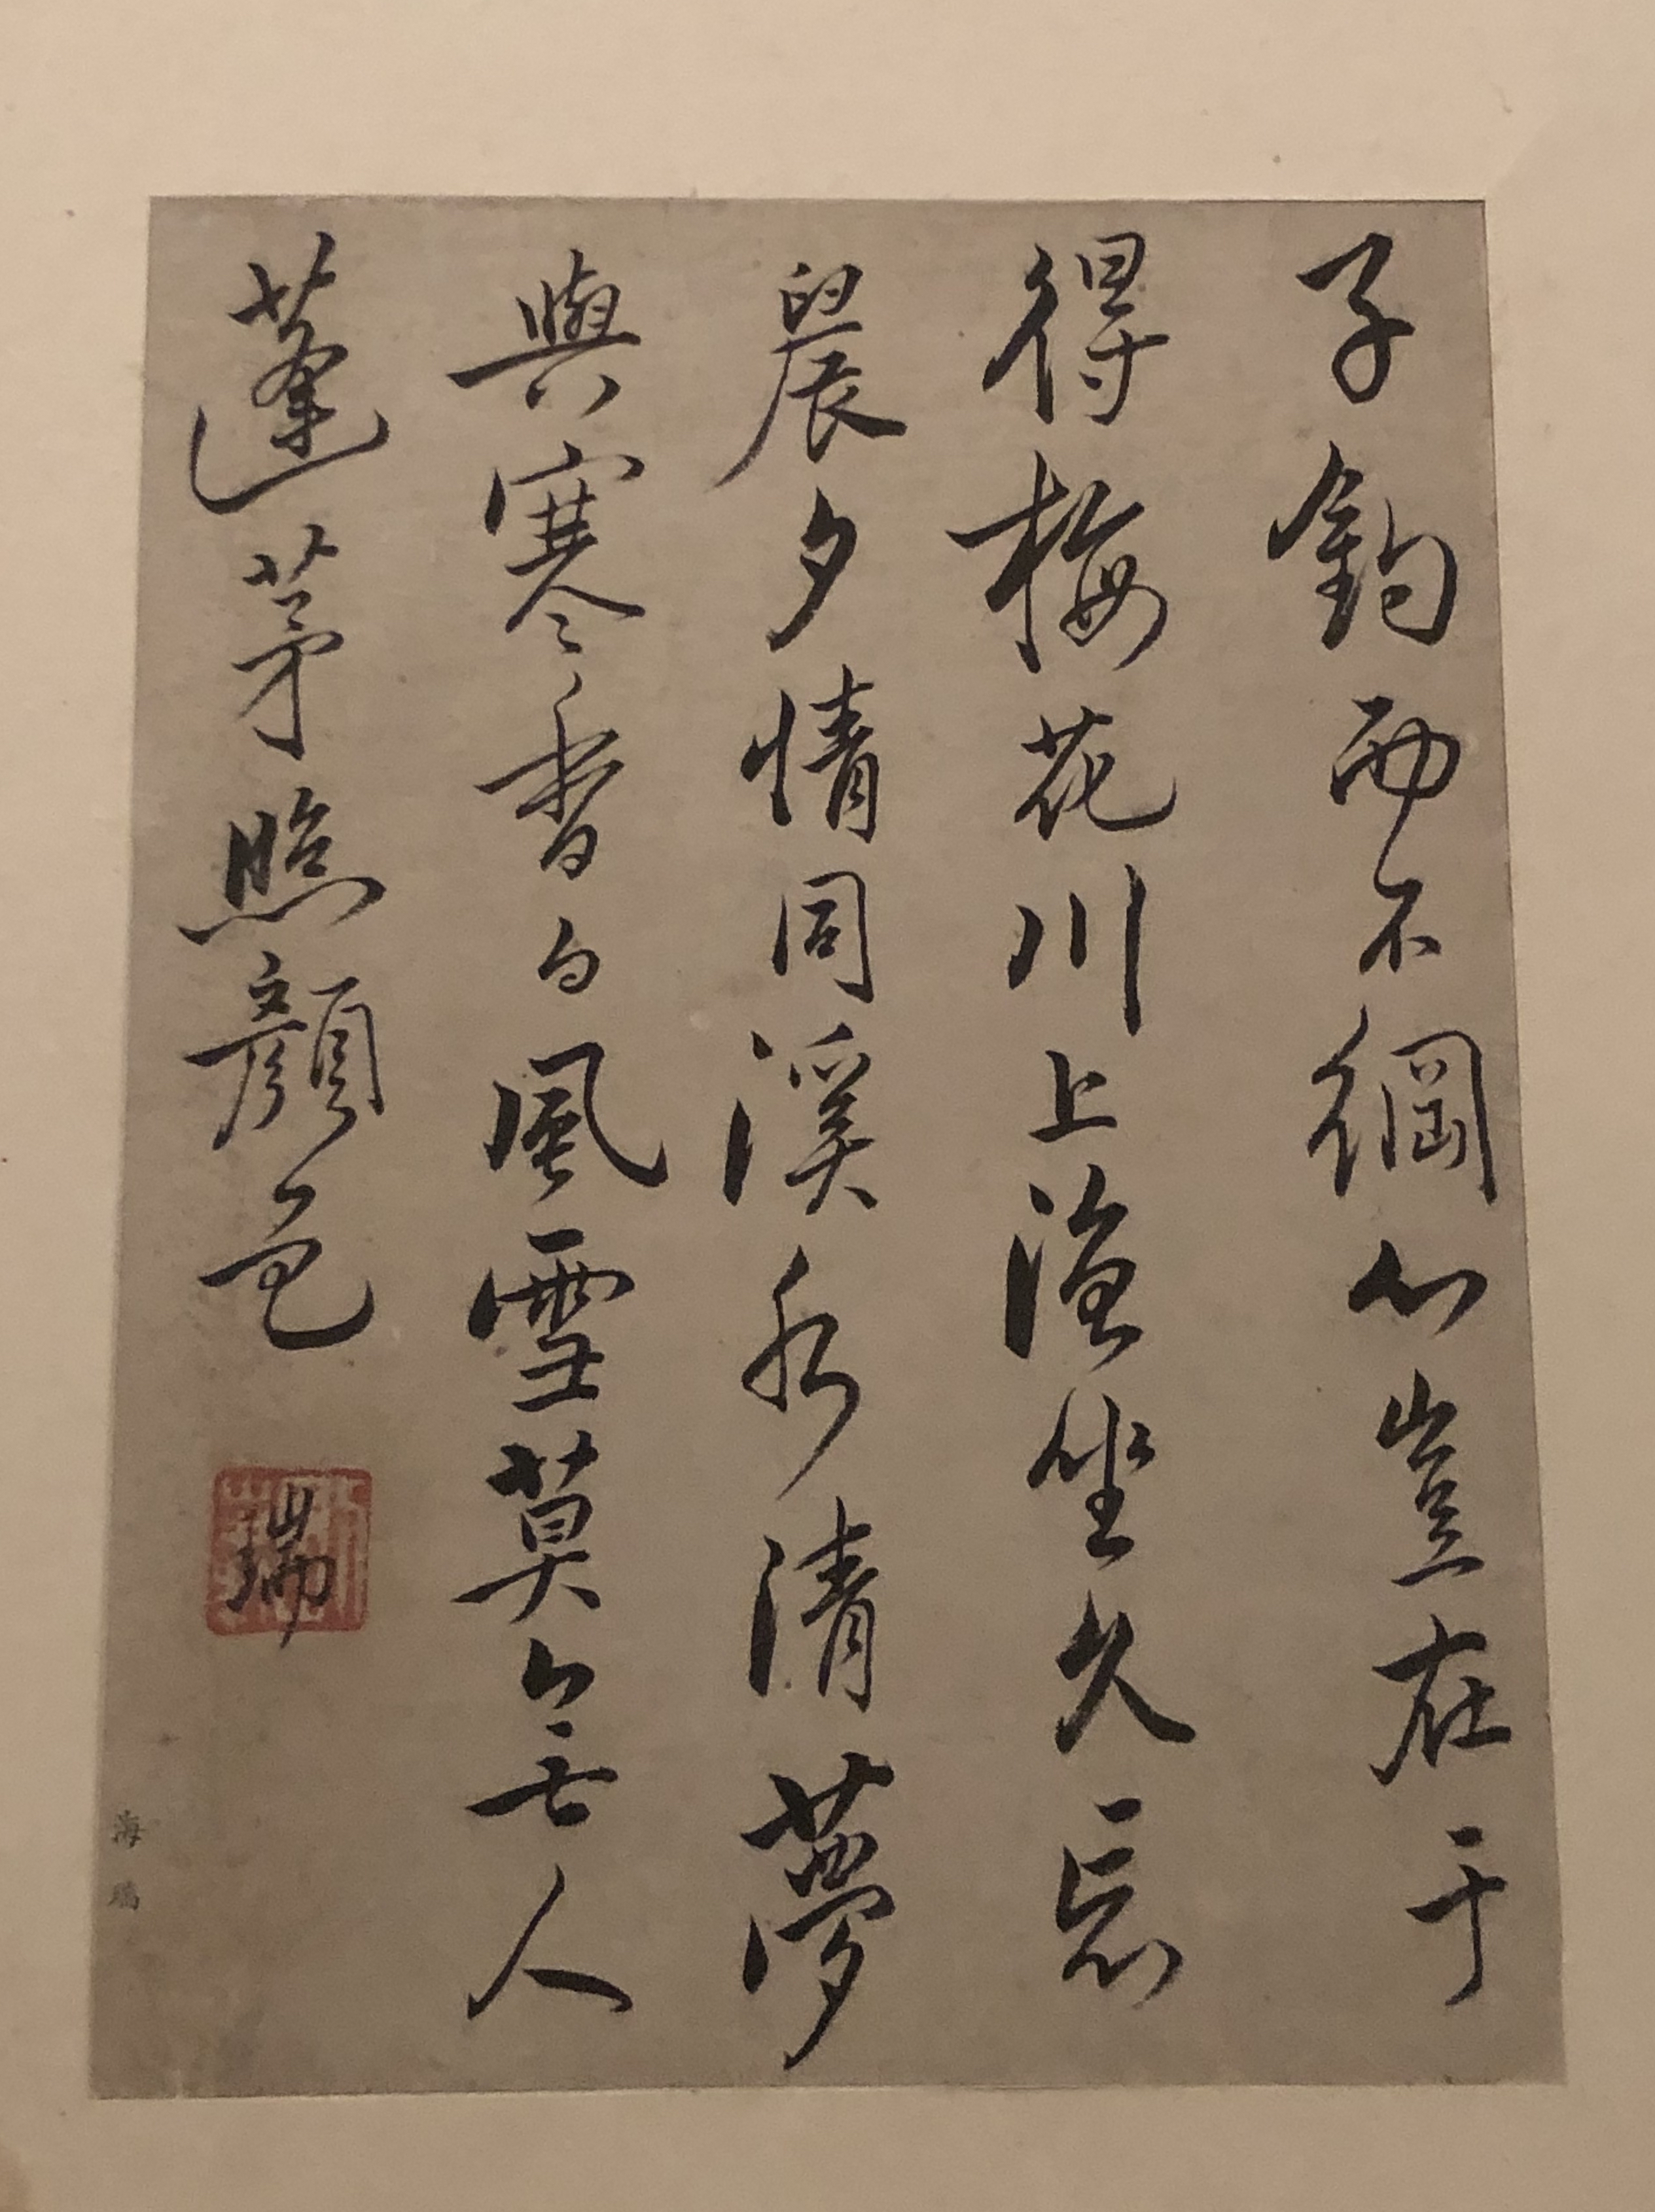 子釣而不綱心豈在于
得梅花川上漁坐久忘
晨夕情同溪水清夢
與寒香白風雪莫無人
蓬茅照顔色
瑞
海瑞